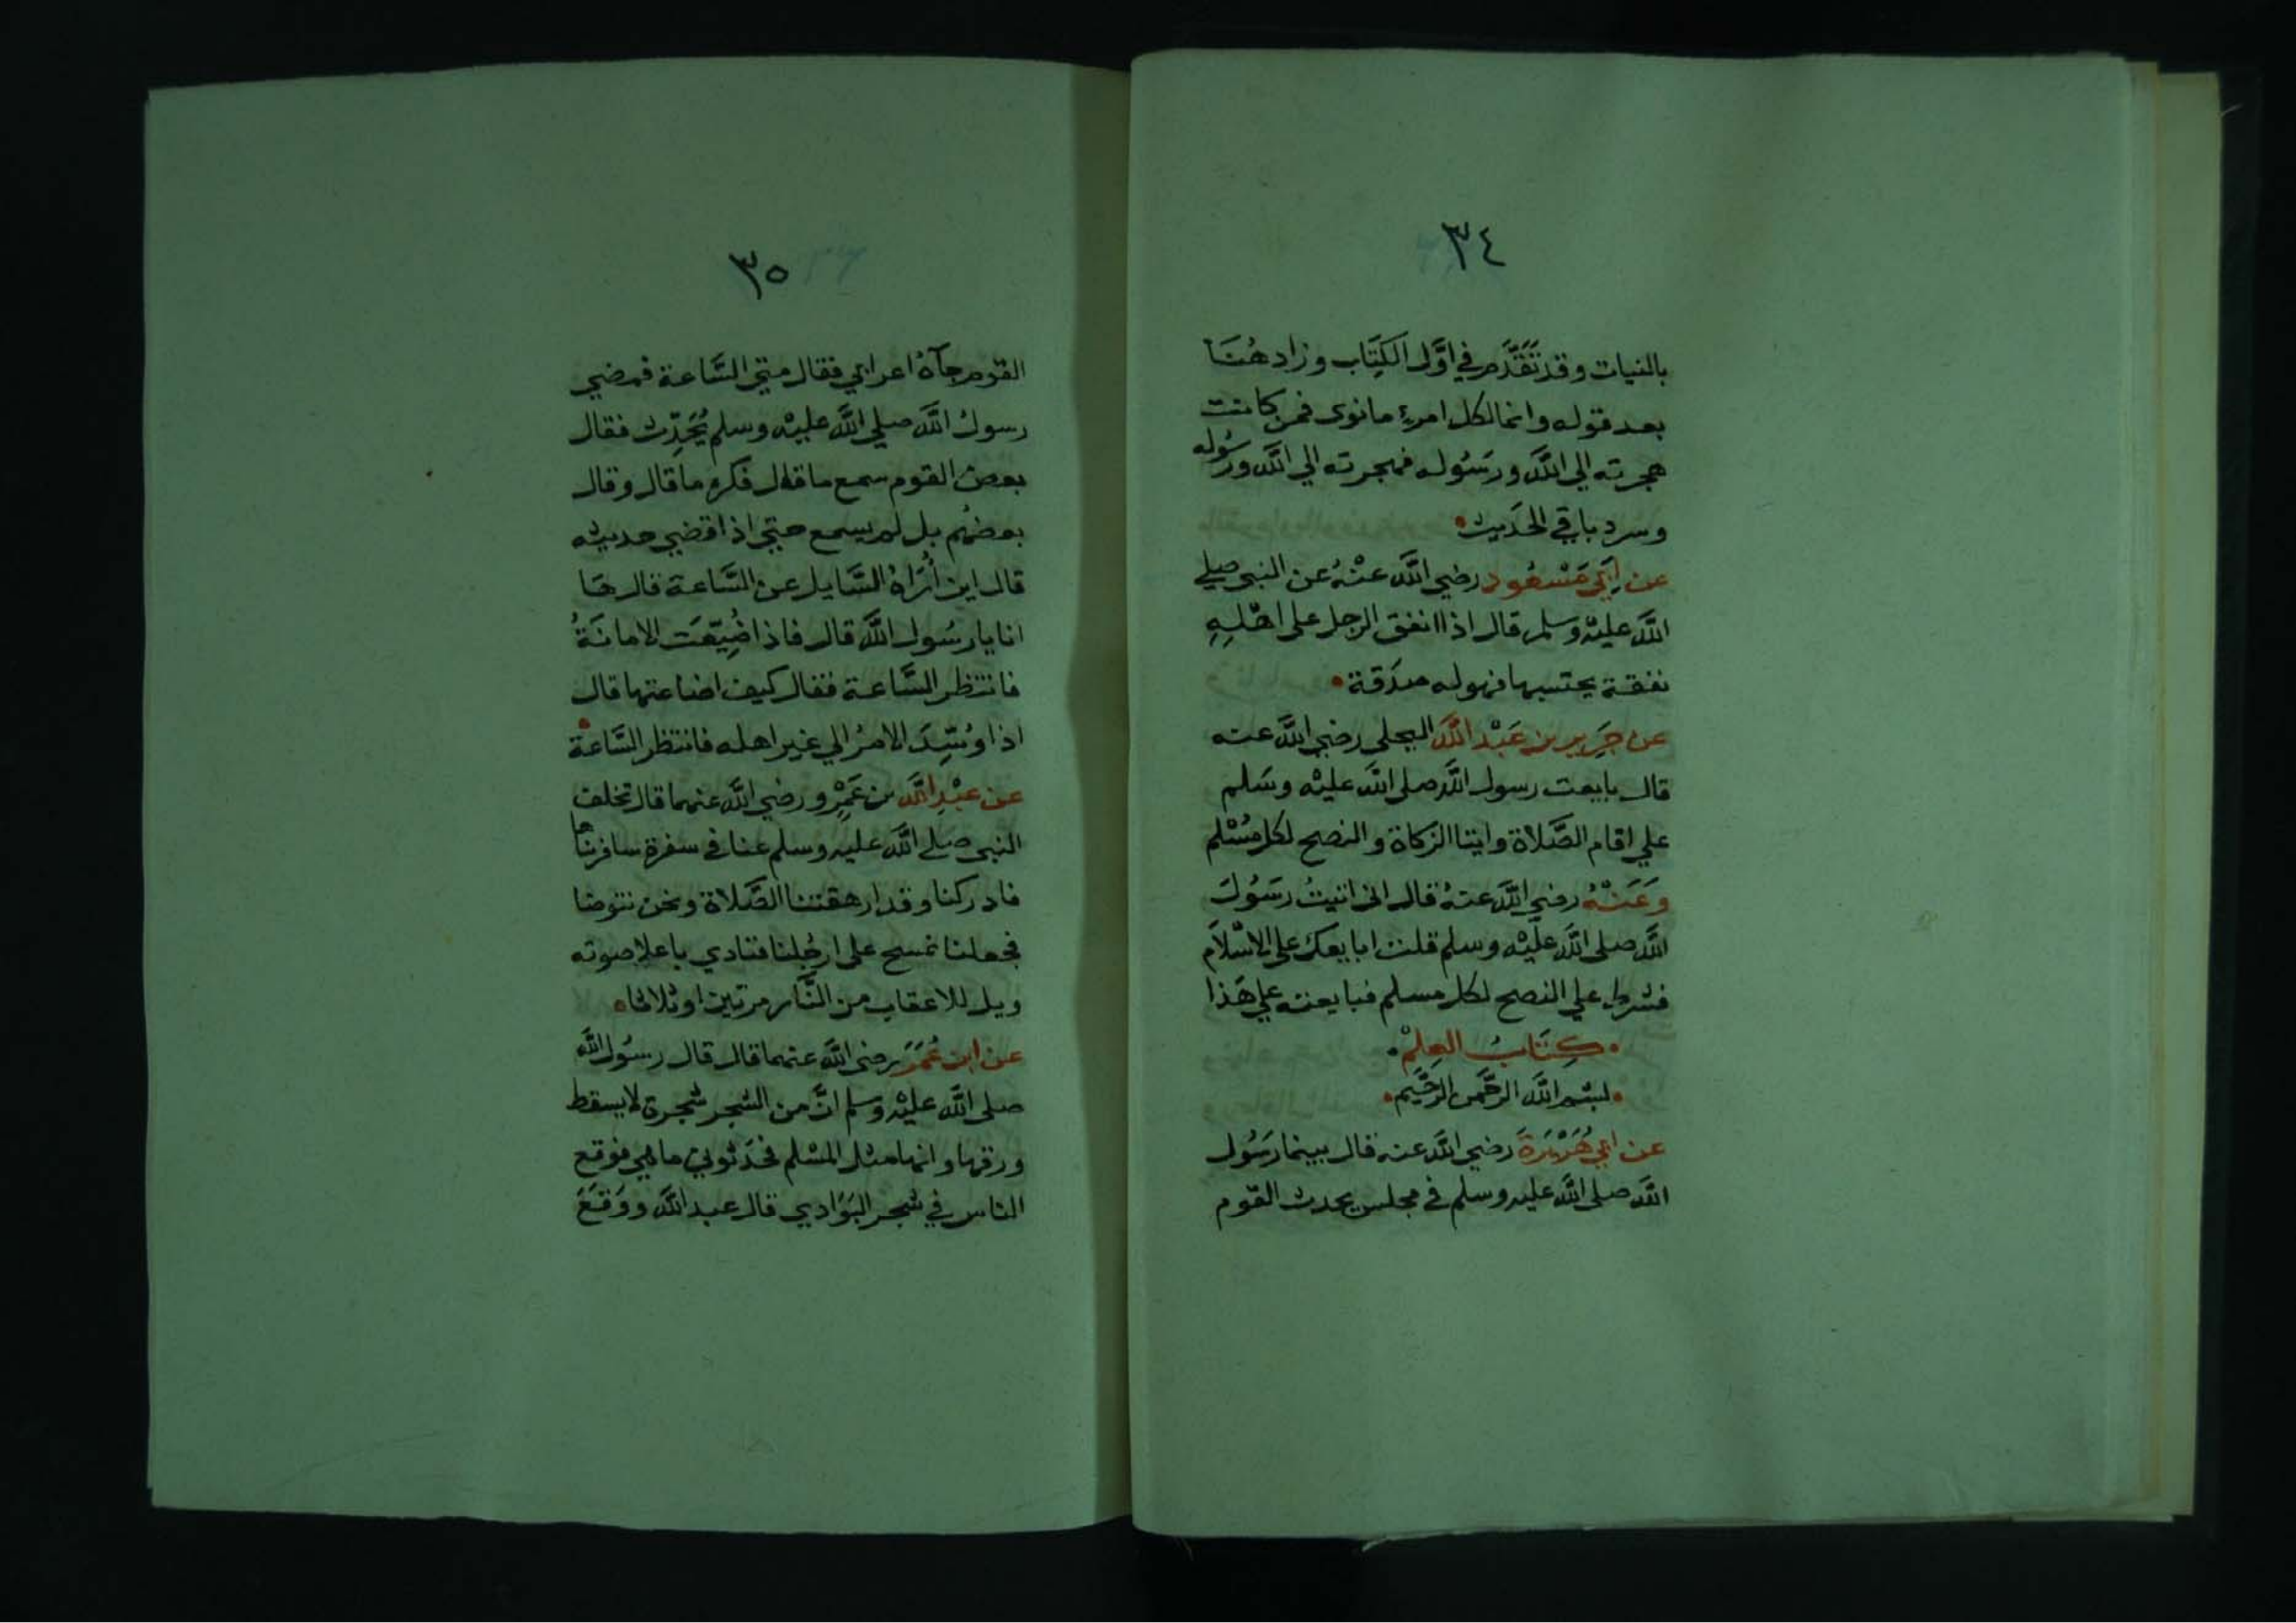 ٣٤
بالنيات وقد تَقَدَّم في اوَّل الكِتَاب وزاد هُنَا
بعد قوله وانما لكل امرءٍ ما نوى فمن كانت
هجرته الي اللَّه ورسُوله فهجرته الي اللَّه ورسُوله
وسرد باقي الحَديث
عن اَبي مَسْعُود رضي اللَّه عنْهُ عن النبي صلي
اللَّه عليْه وسلم قال اذا انفق الرجل على اهْلِهِ
نفقة يحتسبها فهو له صدَقة
عن جَرِير بن عَبْد اللَّه البجلى رضي اللَّه عنه
قال بايعت رسول اللَّه صلى اللَّه عليْه وسَلم
علي اقام الصَّلاة وايتا الزكاة والنصح لكل مُسْلم
وَعَنْهُ رضي اللَّه عنهُ قال انى اتيتُ رسُولَ
اللَّه صلى اللَّه علَيْه وسلم قلت ابايعك على الاسْلاَم
فشرط علي النصح لكل مسلم فبايعته علي هَذا
كِتَابُ العِلمْ
بسْم اللَّه الرحَّمن الرحَّيم
عن ابي هُرَيْرَةَ رضي اللَّه عنه قال بينما رَسُول
اللَّه صلى اللَّه عليه وسلم في مجلس يحدث القوم
٣٥
القوم جآهُ اعرابي فقال متي السَّاعة فمضي
رسولُ اللَّه صلي اللَّه عليْه وسلم يُحَدِّث فقال
بعض القوم سمع ما قال فكره ما قال وقال
بعضهُم بل لم يسمع حتي اذا قضي حديثه
قال اين أُرَاهُ السَّايل عن السَّاعة قال هَا
انا يا رسُول اللَّه قال فاذا ضُيِّعَت الامانَةُ
فانتظر السَّاعة فقال كيف اضاعتها قال
اذا وُسِّدَ الامرُ الي غير اهله فانتظر السَّاعة
عن عبْدِ اللَّه بن عَمْرٍو رضي اللَّه عنهما قال تخلف
النبى صلى اللَّه عليه وسلم عنا في سفرة سافرناها
فادركنا وقد ارهقتنا الصَّلاة ونحن نتوضا
فجعلنا نمسح على ارجُلنا فنادي باعلا صوته
ويل للاعقاب من النَّار مرتين او ثلاثا
عن ابن عُمَرَ رضى اللَّه عنهما قال قال رسُول اللَّه
صلى اللَّه عليْه وسلم انَّ من الشجر شجرة لا يسقط
ورقها وانها مثل المسْلم فحَدثوني ما هي فوقع
الناس في شجر البَوَادي قال عبد اللَّه ووَقَعَ